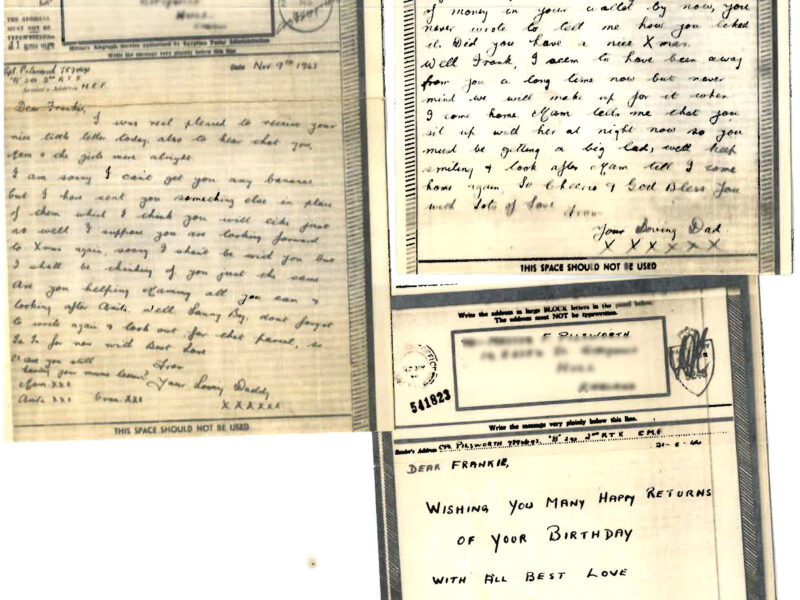 Military Airgraph Service authorised by Egyptian Postal Administration
Write the message very plainly below this line.
Date Nov 9th 1943
Sender's Address M.E.F.
Dear Frankie,
I was real pleased to receive your
nice little letter today, also to hear that you,
Mam & the girls were alright.
I am sorry I can't get you any bananas
but I have sent you something else in place
of them which I think you will like just
as well I suppose you are looking forward
to Xmas again, sorry I shan't be with you but
I shall be thinking of you just the same
Are you helping Mammy all you can &
looking after Anita. Well Sonny Boy, dont forget
to write again & look out for that parcel, so
Ta Ta for now with Best Love
from
Your Loving Daddy
Mam xxx
Anita xxx
xxxxxx
THIS SPACE SHOULD NOT BE USED
of money in your wallet by now, you
never wrote to tell me how you liked
it. Did you have a nice Xmas.
Well Frank, I seem to have been away
from you a long time now but never
mind we will make up for it when
I come home. Mam tells me that you
sit up with her at night now so you
must be getting a big lad, well keep
smiling & look after Mam till I come
home again, So Cheerio & God Bless You
with lots of love
from
Your Loving Dad
x x x x x x
THIS SPACE SHOULD NOT BE USED
Write the address in large BLOCK letters in the panel below.
The address must NOT be typewritten.
F PILSWORTH
HULL
541823
Write the message very plainly below this line.
Sender's Address PILSWORTH "B" 2nd R T R C.M.F
21-6-44
DEAR FRANKIE,
WISHING YOU MANY HAPPY RETURNS
OF YOUR BIRTHDAY
WITH ALL BEST LOVE